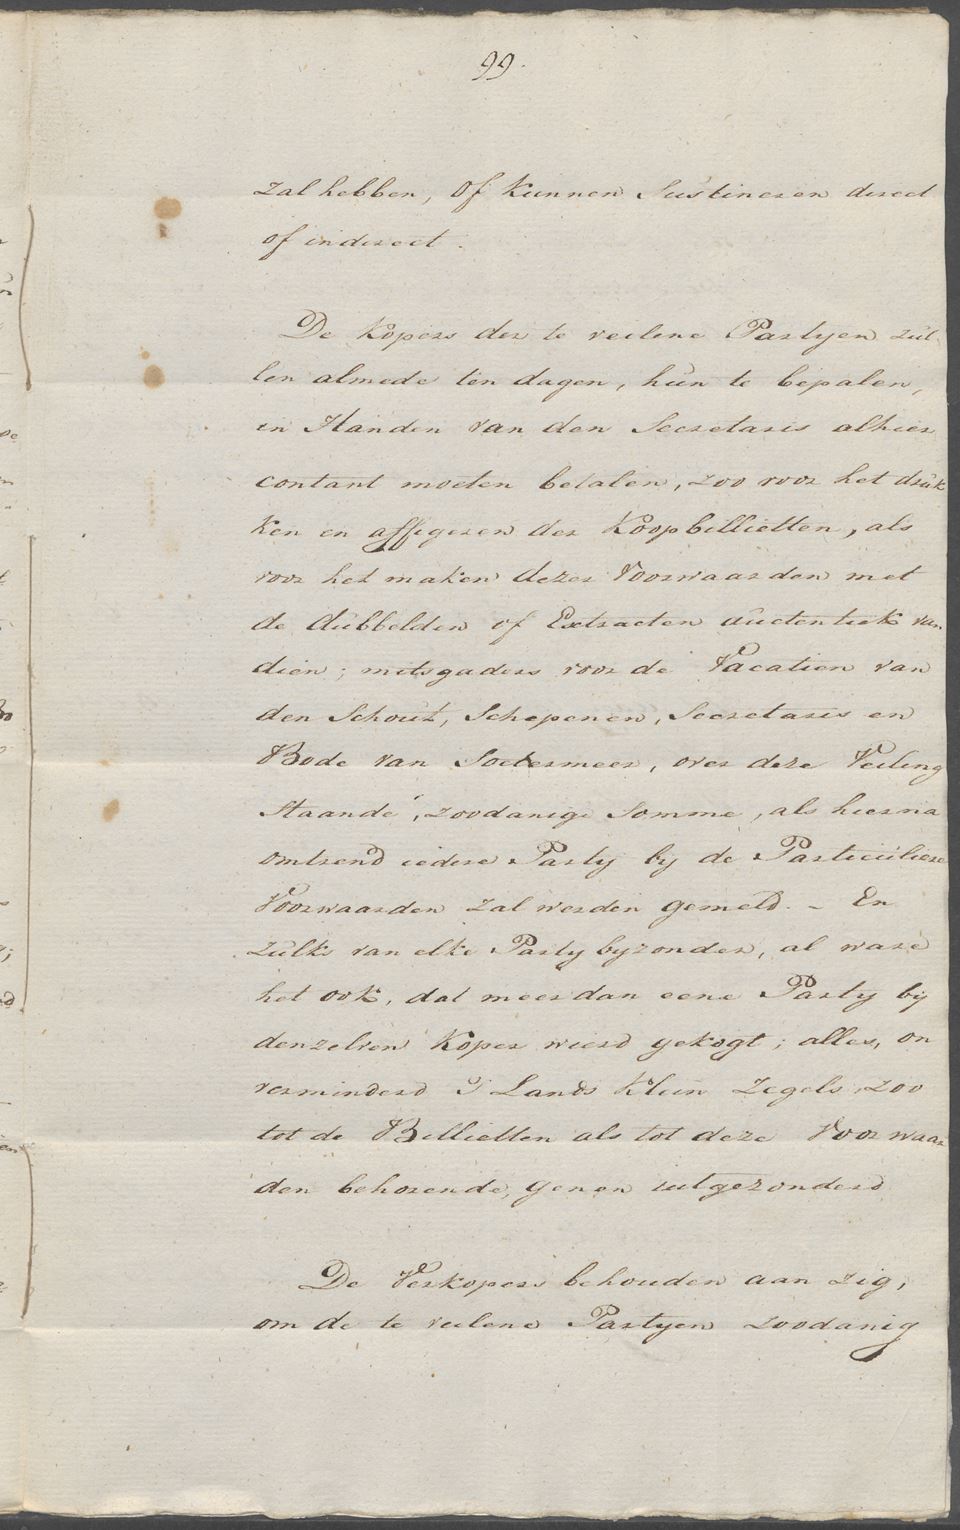 99.
zal hebben, of kunnen Sustineren direct
of indirect.
De Kopers der te veilene Partyen zul-
len almede ten dagen, hun te bepalen,
in Handen van den Secretaris alhier
contant moeten betalen, zoo voor het druk
ken en affigeren der Koopbillietten, als
voor het maken dezer Voorwaarden met
de dubbelden of Extracten auctentiek van
dien; mitsgaders voor de Vacatien van
den Schout, Schepenen, Secretaris en
Bode van Soetermeer, over deze Veiling
Staande, zoodanige Somme, als hierna
omtrend iedere Party by de Particuliere
Voorwaarden zal werden gemeld. - En
zulks van elke Party byzonder, al ware
het ook, dat meer dan eene Party bij
denzelven Koper wierd gekogt; alles, on
verminderd 's Lands Klein Zegels, zoo
tot de Billietten als tot deze Voorwaar
den behorende, genen uitgezonderd
De Verkopers behouden aan zig,
om de te veilene Partyen zoodanig